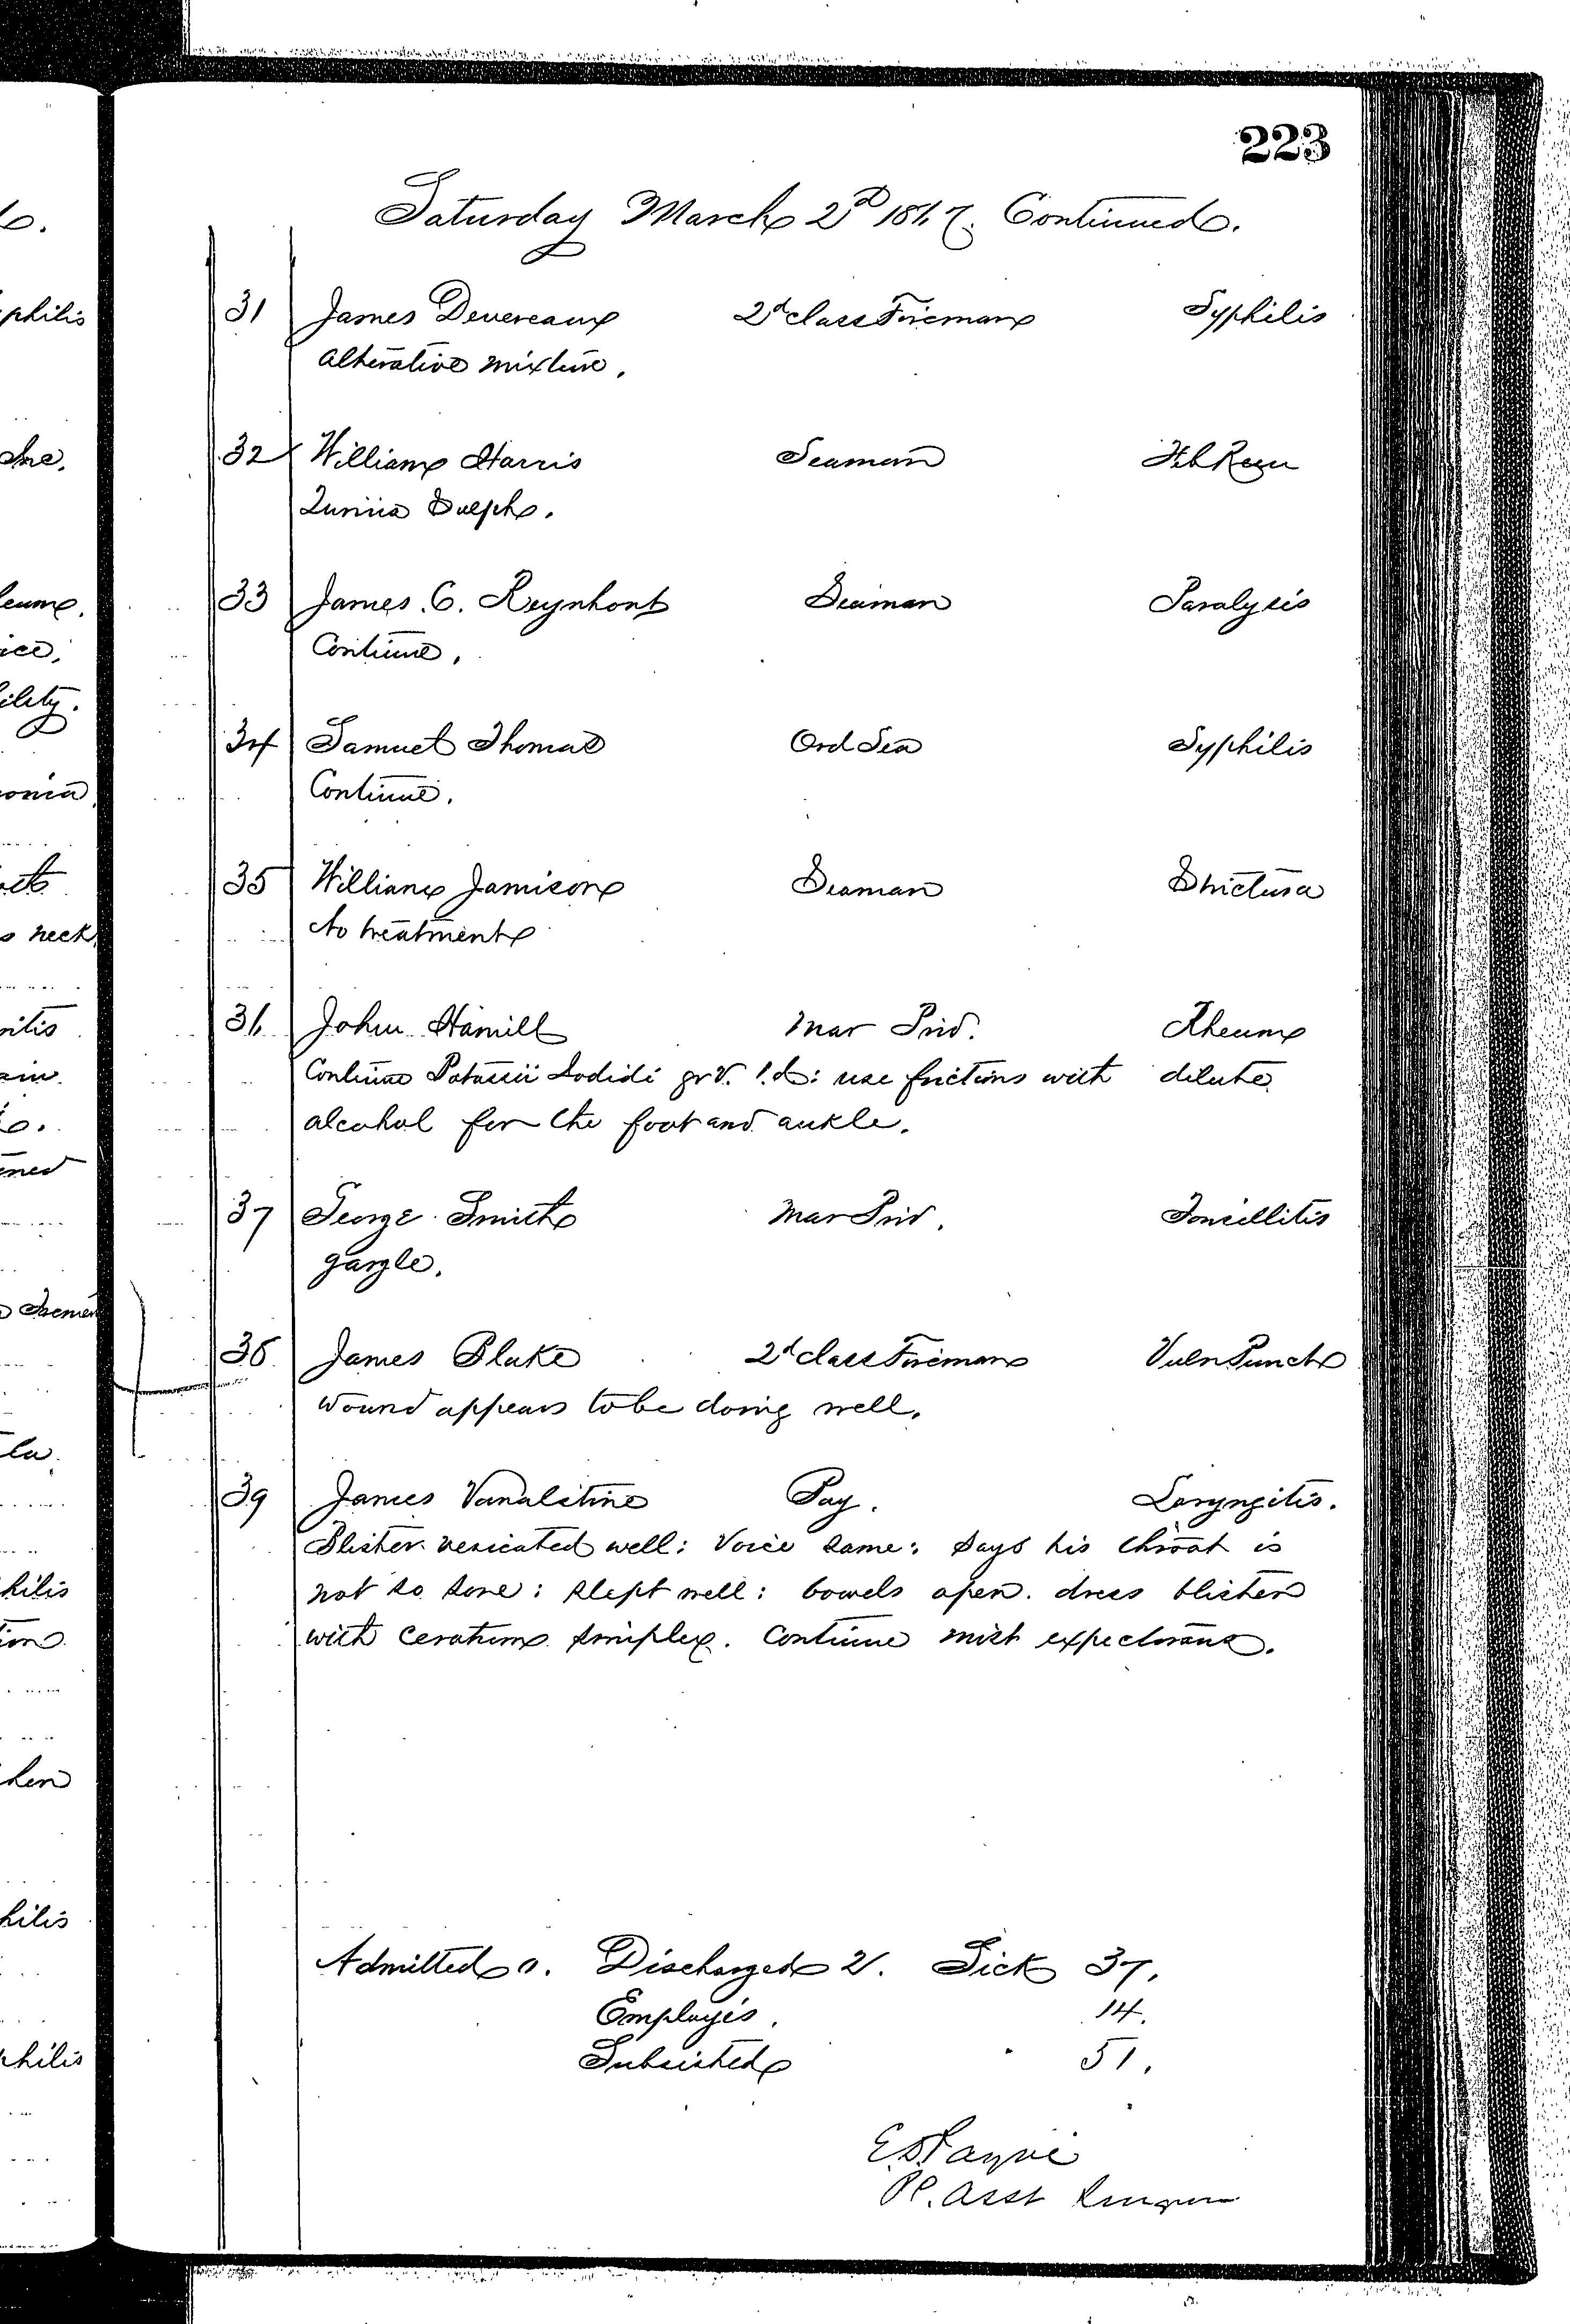 223
Saturday March 2d 1867. Continued.
31 James Devereaux 2d class Fireman Syphilis
alterative mixture.
32 William Harris Seaman Feb Remi
Quinia Sulph.
33 James C. Reynhont Seaman Paralysis
Continue.
34 Samuel Thomas Ord Sea Syphilis
Continue.
35 William Jamison Seaman Strictura
No treatment
36 John Hamill Mar Priv. Rheum
Continue Potassii Iodidi gr V. t.d: use frictions with dilute
alcohol for the foot and ankle.
37 George Smith Mar Priv. Tonsillitis
gargle.
38 James Blake 2d class Fireman Vuln Punct
Wound appears to be doing well.
39 James Vanalstine Pay. Laryngitis.
Blister vesicated well: Voice same: Says his throat is
not so sore: slept well: bowels open. dress blister
with ceratum simplex. Continue mist expectorans.
Admitted 0. Discharged 2. Sick 37.
Employés. 14.
Subsisted 51.
Payne
P. Asst Surgeon